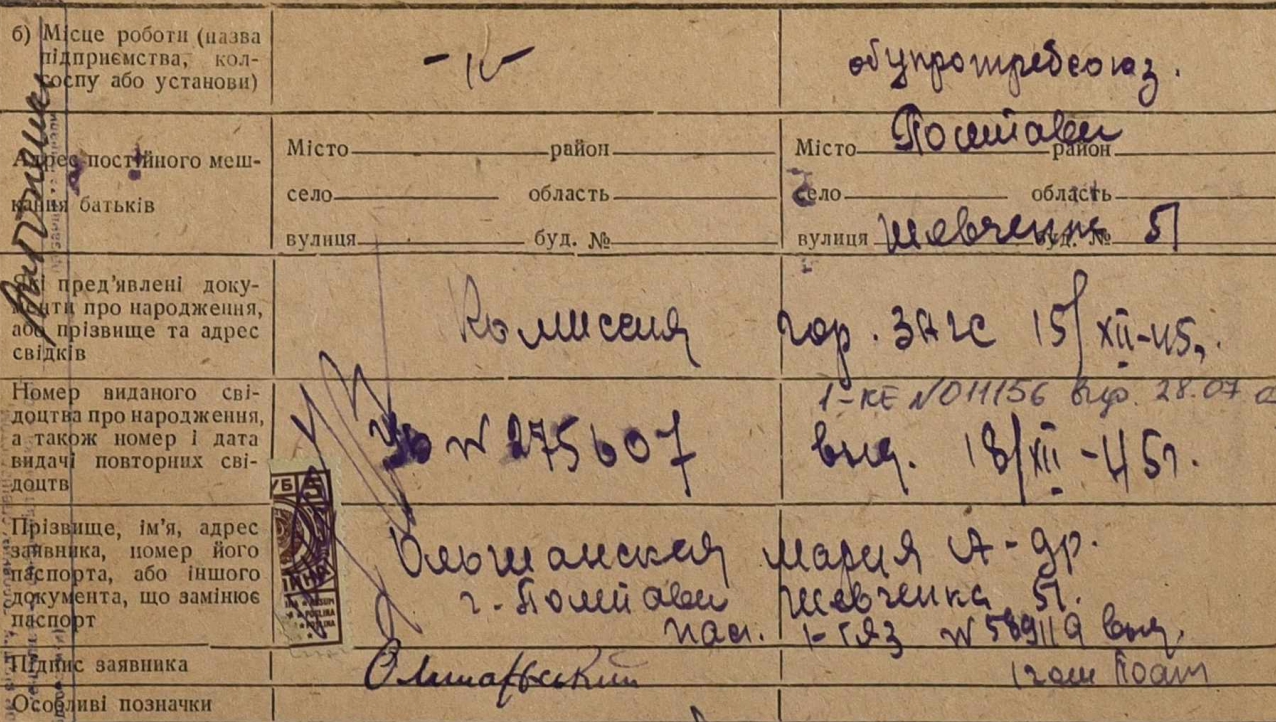 б) Місце роботи (назва
підприємства, кол-
госпу або установи)
облпотребсоюз.
Адрес постійного меш-
кання батьків
Місто район
село область
вулиця буд. №
Місто Полтава район
село область
вулиця Шевченка буд. № 51
Які пред'явлені доку-
менти про народження,
або прізвище та адрес
свідків
Комиссия гор. ЗАГС 15/XII-45г.
Номер виданого сві-
доцтва про народження,
а також номер і дата
видачі повторних сві-
доцтв
1-КЕ № 011156 вид. 28.07
№ 275607 выд. 18/XII-45г.
Прізвище, ім'я, адрес
заявника, номер його
паспорта, або іншого
документа, що замінює
паспорт
Ольшанская Мария А-др.
г. Полтава Шевченка 51.
пас. № 589119 выд.
Підпис заявника
Особливі позначки